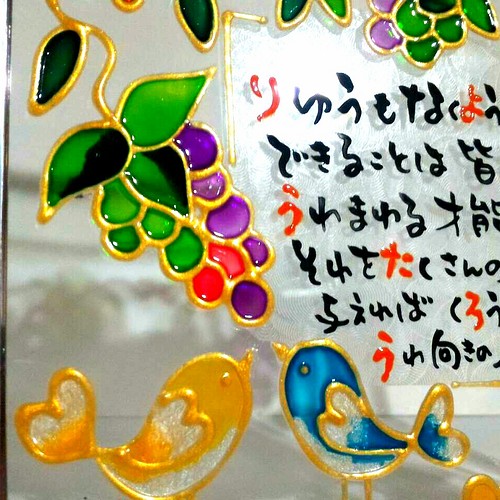 りゆうもなくよう
できることは皆
うわまわる才能
それをたくさんの
与えれば くろう
うわ向きの